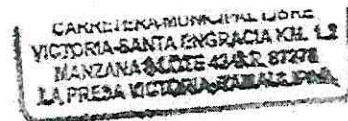 CARRETERA MUNICIPAL LIBRE
VICTORIA-SANTA ENGRACIA KM. 1.2
MANZANA LOTE 87278
LA PRESA VICTORIA, TAMAULIPAS